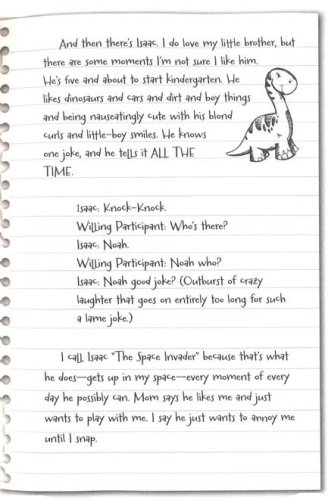 And then there's Isaac. I do love my little brother, but
there are some moments I'm not sure I like him.
He's five and about to start kindergarten. He
likes dinosaurs and cars and dirt and boy things
and being nauseatingly cute with his blond
curls and little-boy smiles. He knows
one joke, and he tells it ALL THE
TIME.
Isaac: Knock-Knock.
Willing Participant: Who's there?
Isaac: Noah.
Willing Participant: Noah who?
Isaac: Noah good joke? (Outburst of crazy
laughter that goes on entirely too long for such
a lame joke.)
I call Isaac "The Space Invader" because that's what
he does—gets up in my space—every moment of every
day he possibly can. Mom says he likes me and just
wants to play with me. I say he just wants to annoy me
until I snap.